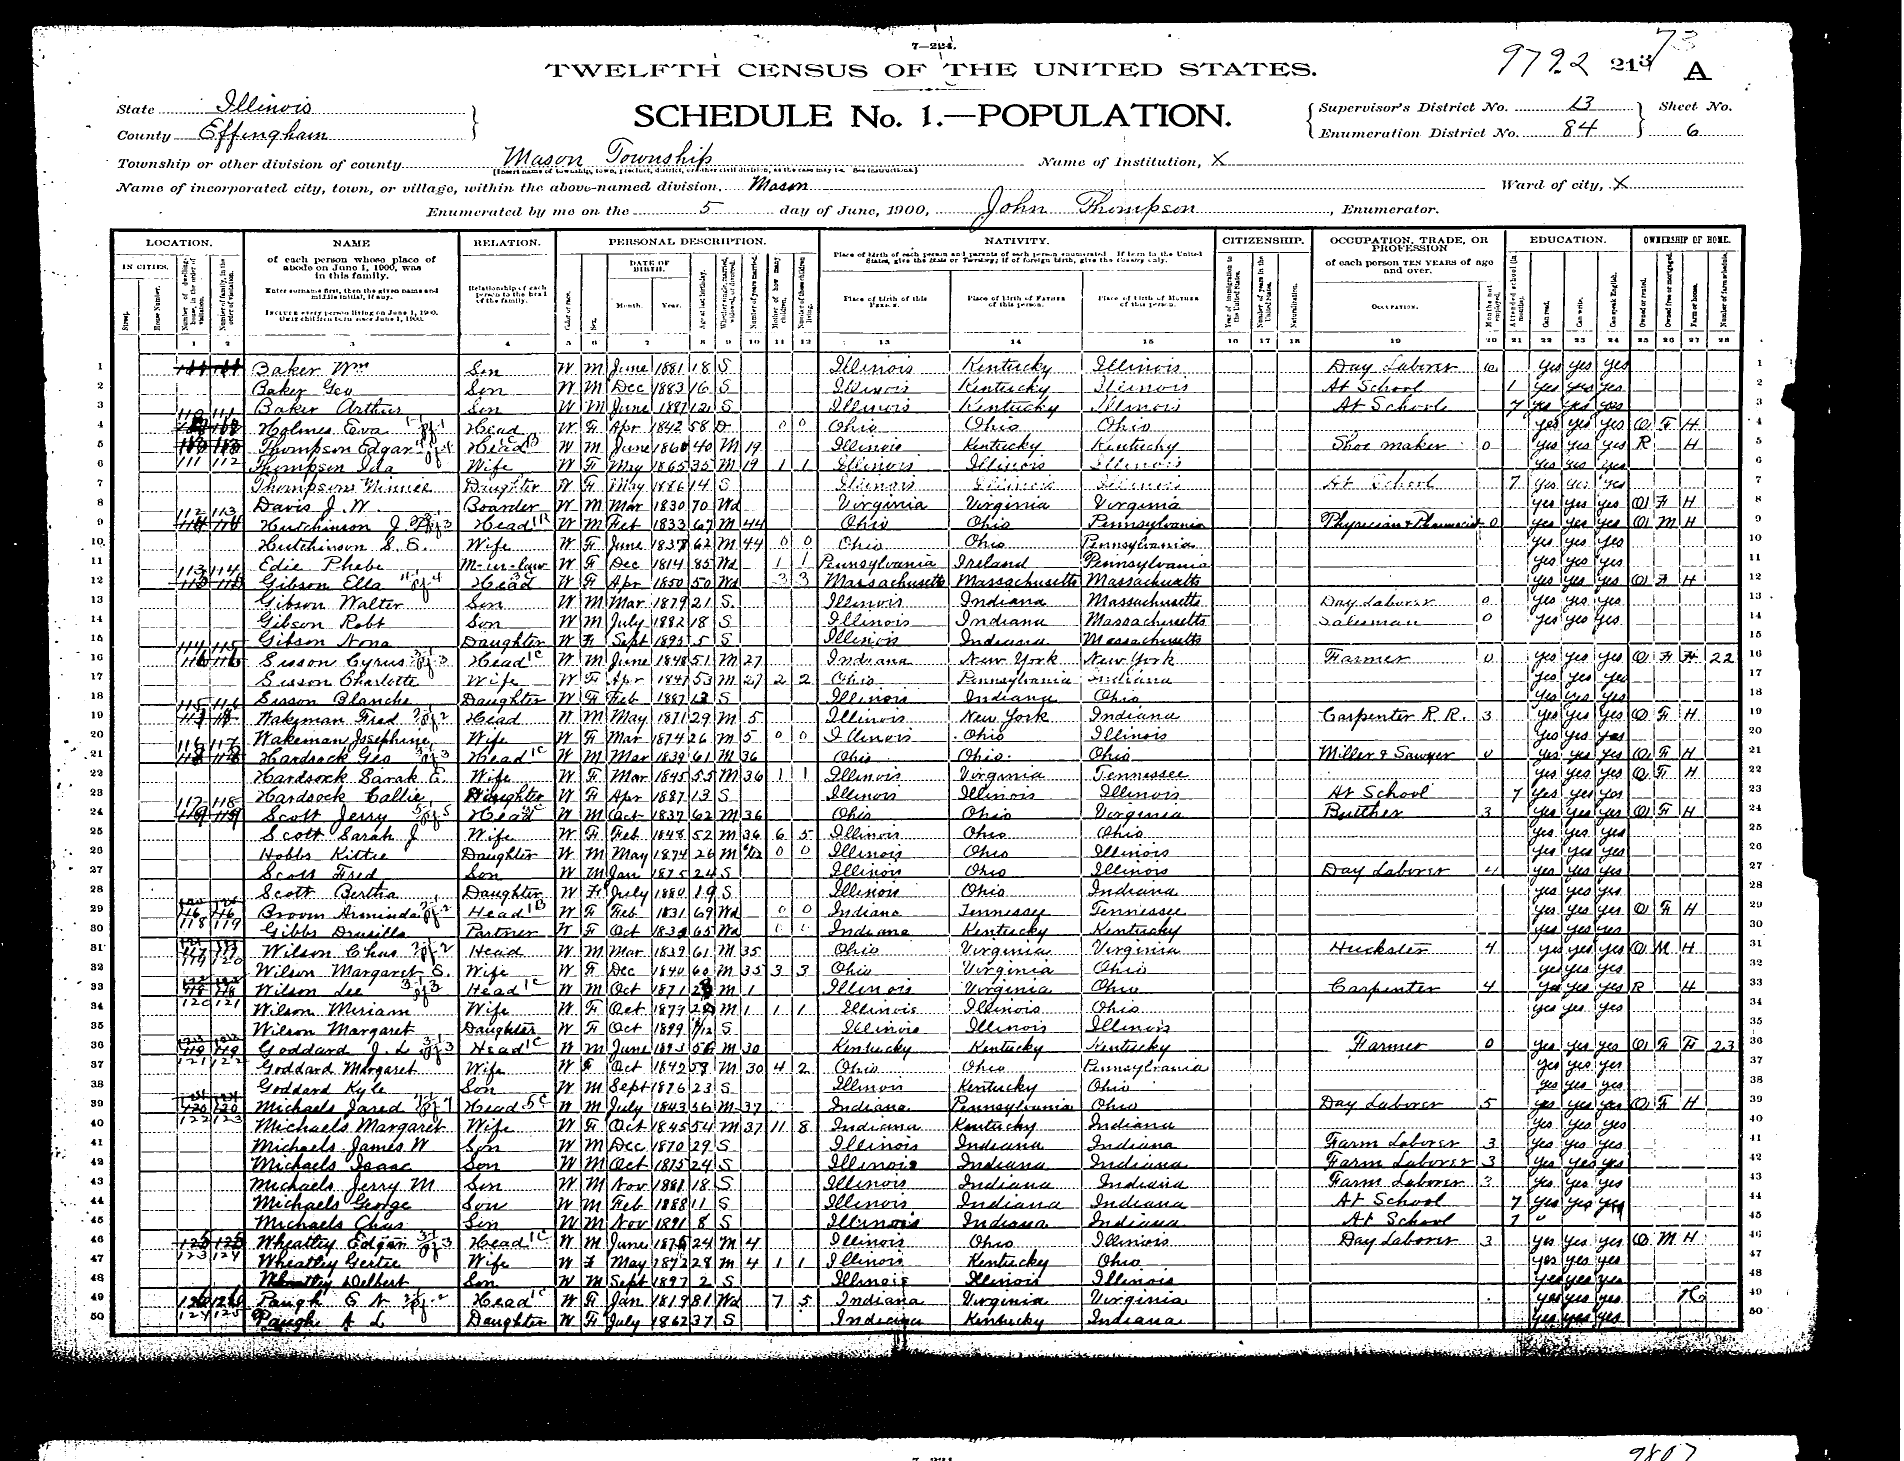 7—224.
9792
73
213 A
TWELFTH CENSUS OF THE UNITED STATES.
State Illinois
County Effingham
SCHEDULE No. 1.—POPULATION.
Supervisor's District No. 13
Enumeration District No. 84
Sheet No. 6
Township or other division of county Mason Township
Name of Institution, X
Name of incorporated city, town, or village, within the above-named division, Mason
Ward of city, X
Enumerated by me on the 5 day of June, 1900, John Thompson, Enumerator.
LOCATION. NAME RELATION. PERSONAL DESCRIPTION. NATIVITY. CITIZENSHIP. OCCUPATION, TRADE, OR PROFESSION EDUCATION. OWNERSHIP OF HOME.
IN CITIES. of each person whose place of abode on June 1, 1900, was in this family. DATE OF BIRTH. of each person TEN YEARS of age and over.
Enter surname first, then the given name and middle initial, if any. Relationship of each person to the head of the family. Month. Year. Place of birth of this PERSON. Place of birth of FATHER of this person. Place of birth of MOTHER of this person. OCCUPATION.
1 2 3 4 5 6 7 8 9 10 11 12 13 14 15 16 17 18 19 20 21 22 23 24 25 26 27 28
1 Baker Wm Son W M June 1881 18 S Illinois Kentucky Illinois Day Laborer yes yes yes 1
2 Baker Geo Son W M Dec 1883 16 S Illinois Kentucky Illinois At School 1 yes yes yes 2
3 Baker Arthur Son W M June 1887 12 S Illinois Kentucky Illinois At School 7 yes yes yes 3
4 Holmes Eva Head W F Apr 1842 58 D 0 0 Ohio Ohio Ohio yes yes yes O F H 4
5 Thompson Edgar Head W M June 1860 40 M 19 Illinois Kentucky Kentucky Shoe maker 0 yes yes yes R H 5
6 111 112 Thompson Ida Wife W F May 1865 35 M 19 1 1 Illinois Illinois Illinois yes yes yes 6
7 Thompson Minnie Daughter W F May 1886 14 S Illinois Illinois Illinois At School 7 yes yes yes 7
8 Davis J. W. Boarder W M Mar 1830 70 Wd Virginia Virginia Virginia yes yes yes O F H 8
9 112 113 Hutchinson J Head W M Feb 1833 67 M 44 Ohio Ohio Pennsylvania Physician & Pharmacist 0 yes yes yes O M H 9
10 Hutchinson S. E. Wife W F June 1837 62 M 44 0 0 Ohio Ohio Pennsylvania yes yes yes 10
11 Edie Phebe M-in-law W F Dec 1814 85 Wd 1 1 Pennsylvania Ireland Pennsylvania yes yes yes 11
12 113 114 Gibson Ella Head W F Apr 1850 50 Wd 3 3 Massachusetts Massachusetts Massachusetts yes yes yes O F H 12
13 Gibson Walter Son W M Mar 1879 21 S Illinois Indiana Massachusetts Day Laborer 0 yes yes yes 13
14 Gibson Robt Son W M July 1882 18 S Illinois Indiana Massachusetts Salesman 0 yes yes yes 14
15 Gibson Nona Daughter W F Sept 1895 5 S Illinois Indiana Massachusetts 15
16 114 115 Sisson Cyrus Head W M June 1848 51 M 27 Indiana New York New York Farmer 0 yes yes yes O F F 22 16
17 Sisson Charlotte Wife W F Apr 1847 53 M 27 2 2 Ohio Pennsylvania Indiana yes yes yes 17
18 Sisson Blanche Daughter W F Feb 1887 13 S Illinois Indiana Ohio yes yes yes 18
19 115 116 Wakeman Fred Head W M May 1871 29 M 5 Illinois New York Indiana Carpenter R. R. 3 yes yes yes O F H 19
20 Wakeman Josephine Wife W F Mar 1874 26 M 5 0 0 Illinois Ohio Illinois yes yes yes 20
21 116 117 Hardsock Geo Head W M Mar 1839 61 M 36 Ohio Ohio Ohio Miller & Sawyer 0 yes yes yes O F H 21
22 Hardsock Sarah E Wife W F Mar 1845 55 M 36 1 1 Illinois Virginia Tennessee yes yes yes O F H 22
23 Hardsock Callie Daughter W F Apr 1887 13 S Illinois Illinois Illinois At School 7 yes yes yes 23
24 117 118 Scott Jerry Head W M Oct 1837 62 M 36 Ohio Ohio Virginia Butcher 3 yes yes yes O F H 24
25 Scott Sarah J Wife W F Feb 1848 52 M 36 6 5 Illinois Ohio Ohio yes yes yes 25
26 Hobbs Kittie Daughter W M May 1874 26 M 0 0 Illinois Ohio Illinois yes yes yes 26
27 Scott Fred Son W M Jan 1875 24 S Illinois Ohio Illinois Day Laborer 4 yes yes yes 27
28 Scott Bertha Daughter W F July 1880 19 S Illinois Ohio Indiana yes yes yes 28
29 118 119 Broom Arminda Head W F Feb 1831 69 Wd 0 0 Indiana Tennessee Tennessee yes yes yes O F H 29
30 Gibbs Drusilla Partner W F Oct 65 Wd 0 0 Indiana Kentucky Kentucky yes yes yes 30
31 119 120 Wilson Chas Head W M Mar 1839 61 M 35 Ohio Virginia Virginia Huckster 4 yes yes yes O M H 31
32 Wilson Margaret S. Wife W F Dec 1840 60 M 35 3 3 Ohio Virginia Ohio yes yes yes 32
33 Wilson Lee Head W M Oct 1871 28 M 1 Illinois Virginia Ohio Carpenter 4 yes yes yes R H 33
34 120 121 Wilson Miriam Wife W F Oct M 1 1 1 Illinois Illinois Ohio yes yes yes 34
35 Wilson Margaret Daughter W F Oct 1899 S Illinois Illinois Illinois 35
36 Goddard J. L. Head W M June 56 M 30 Kentucky Kentucky Kentucky Farmer 0 yes yes yes O F F 23 36
37 121 122 Goddard Margaret Wife W F Oct 1842 M 30 4 2 Ohio Ohio Pennsylvania yes yes yes 37
38 Goddard Kyle Son W M Sept 1876 23 S Illinois Kentucky Ohio yes yes yes 38
39 Michaels Jared Head W M July 1843 56 M 37 Indiana Pennsylvania Ohio Day Laborer 5 yes yes yes O F H 39
40 122 123 Michaels Margaret Wife W F Oct 1845 54 M 37 11 8 Indiana Kentucky Indiana yes yes yes 40
41 Michaels James W Son W M Dec 1870 29 S Illinois Indiana Indiana Farm Laborer 3 yes yes yes 41
42 Michaels Isaac Son W M Oct 1875 24 S Illinois Indiana Indiana Farm Laborer 3 yes yes yes 42
43 Michaels Jerry M Son W M Nov 1881 18 S Illinois Indiana Indiana Farm Laborer 3 yes yes yes 43
44 Michaels George Son W M Feb 1888 11 S Illinois Indiana Indiana At School 7 yes yes yes 44
45 Michaels Chas Son W M Nov 1891 8 S Illinois Indiana Indiana At School 7 45
46 Wheatley Edgar Head W M June 24 M 4 Illinois Ohio Illinois Day Laborer 3 yes yes yes O M H 46
47 123 124 Wheatley Gertie Wife W F May 1872 28 M 4 1 1 Illinois Kentucky Ohio yes yes yes 47
48 Wheatley Delbert Son W M Sept 1897 2 S Illinois Illinois Illinois yes yes yes 48
49 Paugh E N Head W F Jan 1819 81 Wd 7 5 Indiana Virginia Virginia yes yes yes 49
50 124 125 Paugh A L Daughter W F July 1862 37 S Indiana Kentucky Indiana yes yes yes 50